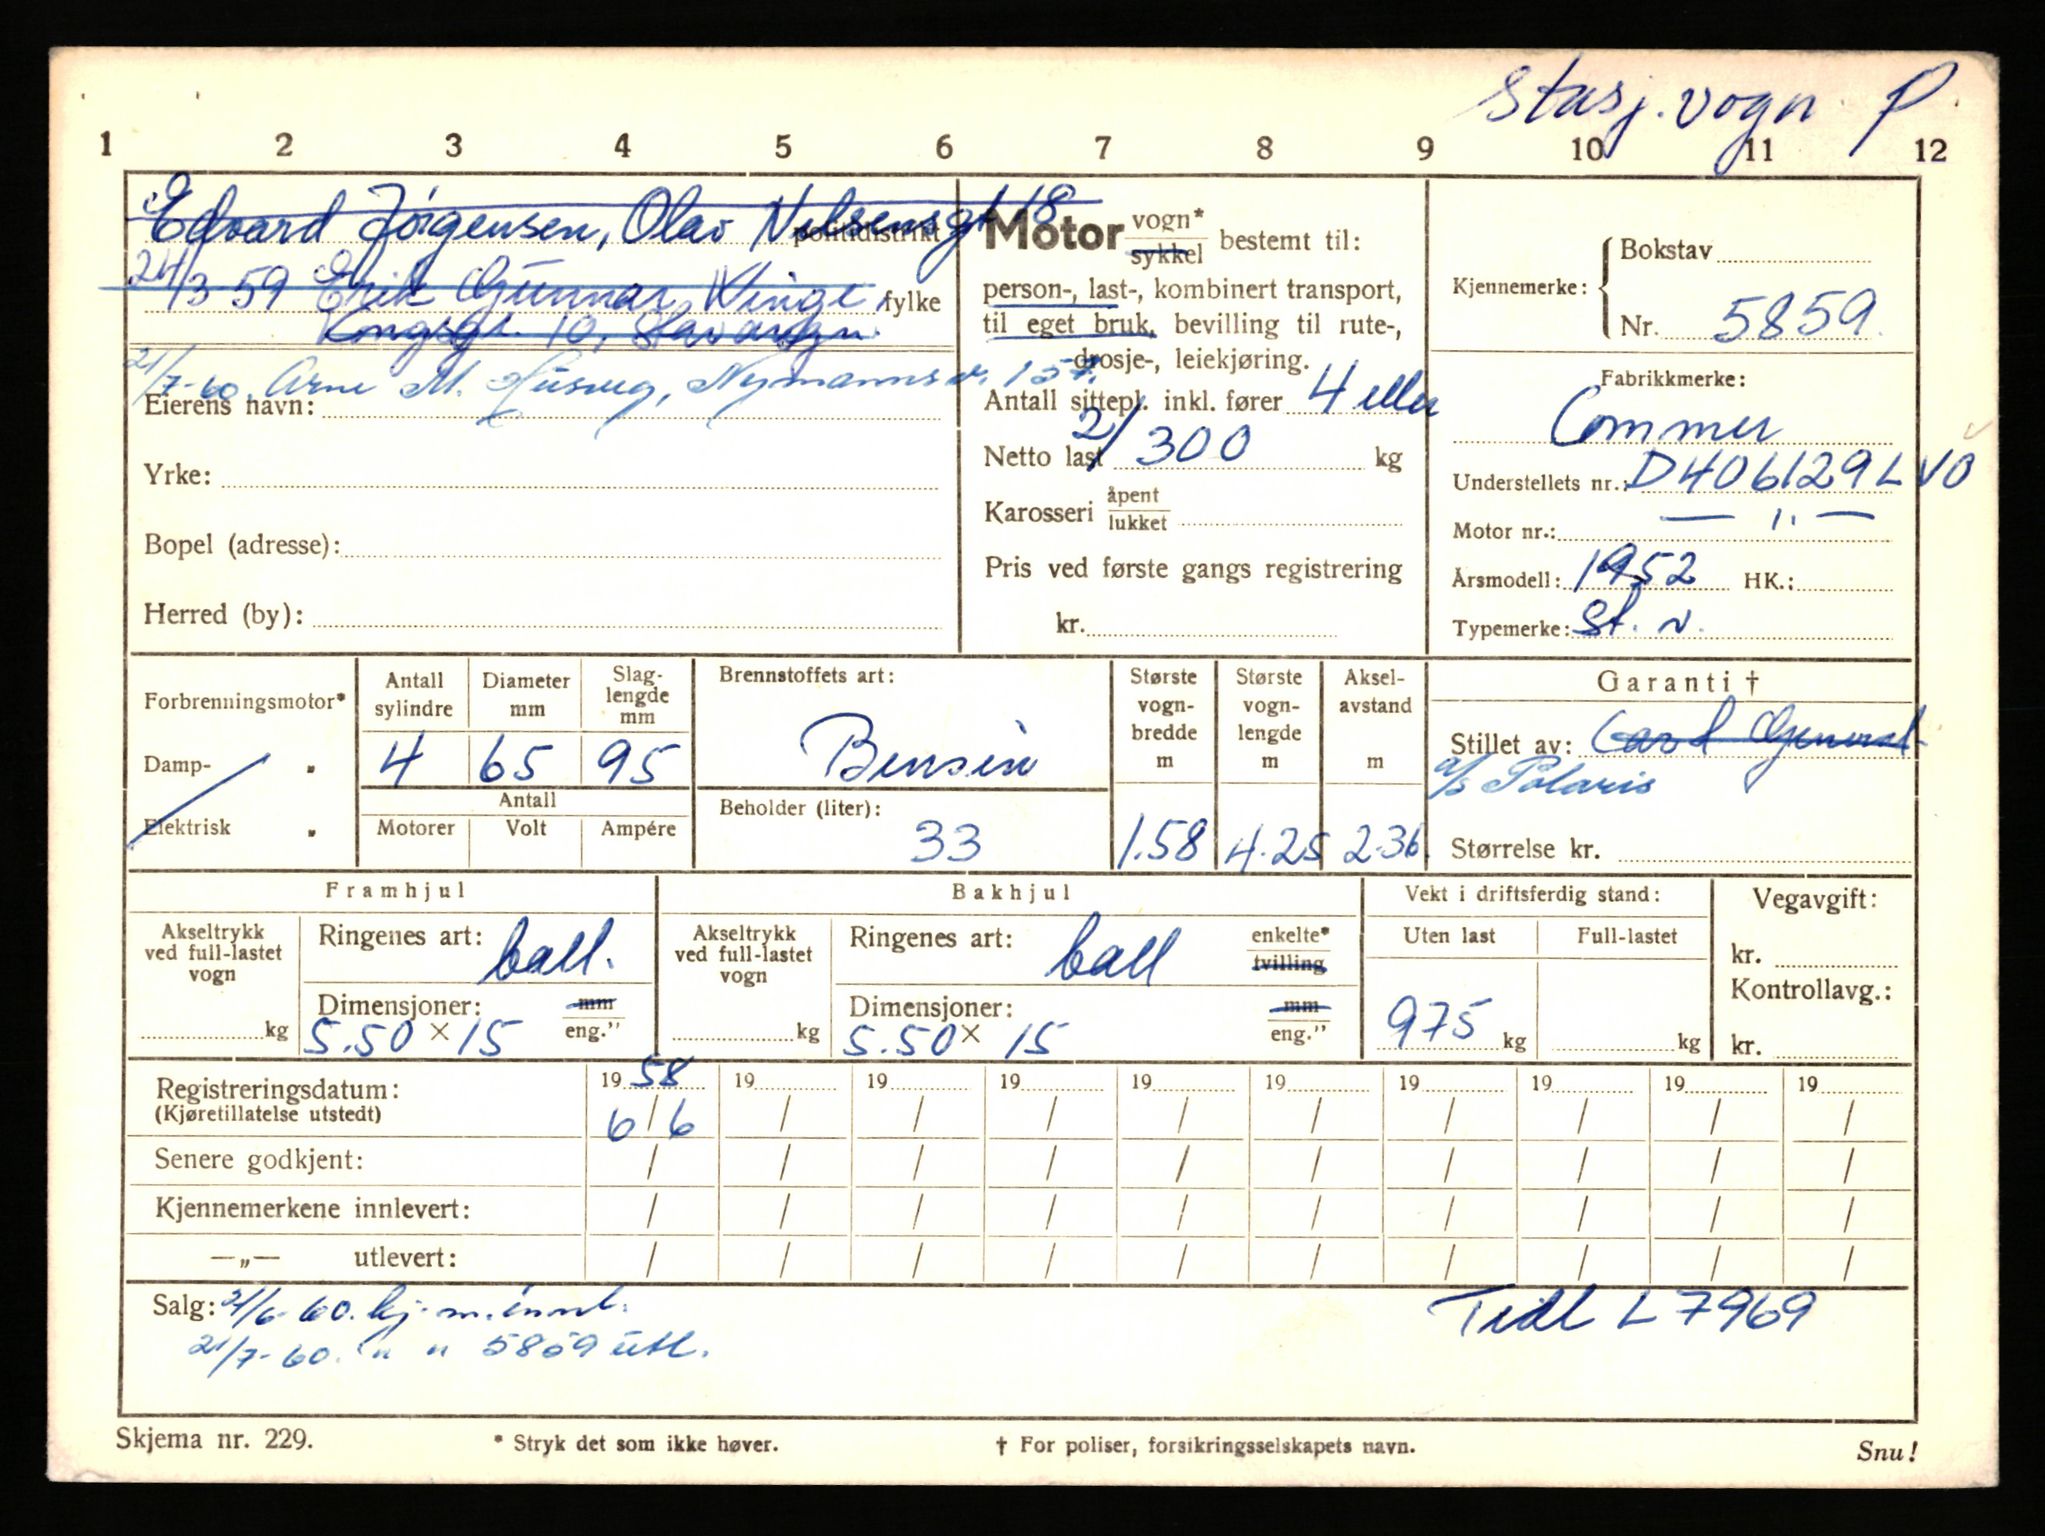 Stasj. vogn P.
1 2 3 4 5 6 7 8 9 10 11 12
Edvard Jörgensen, Olav Nilsensgt 18
politidistrikt
24/3-59 Erik Gunnar Winge,
fylke
Kongsgt. 10, Stavanger.
21/7-60. Arne M. Husveg, Nymannsv. 157.
Eierens navn:
Yrke:
Bopel (adresse):
Herred (by):
Motor vogn* sykkel bestemt til:
person-, last-, kombinert transport,
til eget bruk, bevilling til rute-,
drosje-, leiekjøring.
Antall sittepl. inkl. fører 4 eller
Netto last 2/300 kg
Karosseri åpent lukket
Pris ved første gangs registrering
kr.
Kjennemerke: Bokstav
Nr. 5859.
Fabrikkmerke:
Commer
Understellets nr.: D406129LVO
Motor nr.: — " —
Årsmodell: 1952 HK.:
Typemerke: St. v.
Forbrenningsmotor*
Damp- "
Elektrisk "
Antall sylindre Diameter mm Slag-lengde mm
4 65 95
Antall
Motorer Volt Ampére
Brennstoffets art:
Bensin
Beholder (liter):
33
Største vogn-bredde m
1.58
Største vogn-lengde m
4.25
Aksel-avstand m
2.36.
Garanti †
Stillet av:
a/s Polaris
Størrelse kr.
Framhjul
Akseltrykk ved full-lastet vogn
kg
Ringenes art: ball.
Dimensjoner: mm
5.50 × 15 eng."
Bakhjul
Akseltrykk ved full-lastet vogn
kg
Ringenes art: ball enkelte* tvilling
Dimensjoner: mm
5.50 × 15 eng."
Vekt i driftsferdig stand:
Uten last Full-lastet
975 kg kg
Vegavgift:
kr.
Kontrollavg.:
kr.
Registreringsdatum: 1958 19 19 19 19 19 19 19 19 19
(Kjøretillatelse utstedt) 6/6 / / / / / / / / /
Senere godkjent: / / / / / / / / / /
Kjennemerkene innlevert: / / / / / / / / / /
—„— utlevert: / / / / / / / / / /
Salg: 21/6-60. kj.m. innl.
Tidl L 7969
21/7-60. " " 5859 utl.
Skjema nr. 229.
* Stryk det som ikke høver.
† For poliser, forsikringsselskapets navn.
Snu!